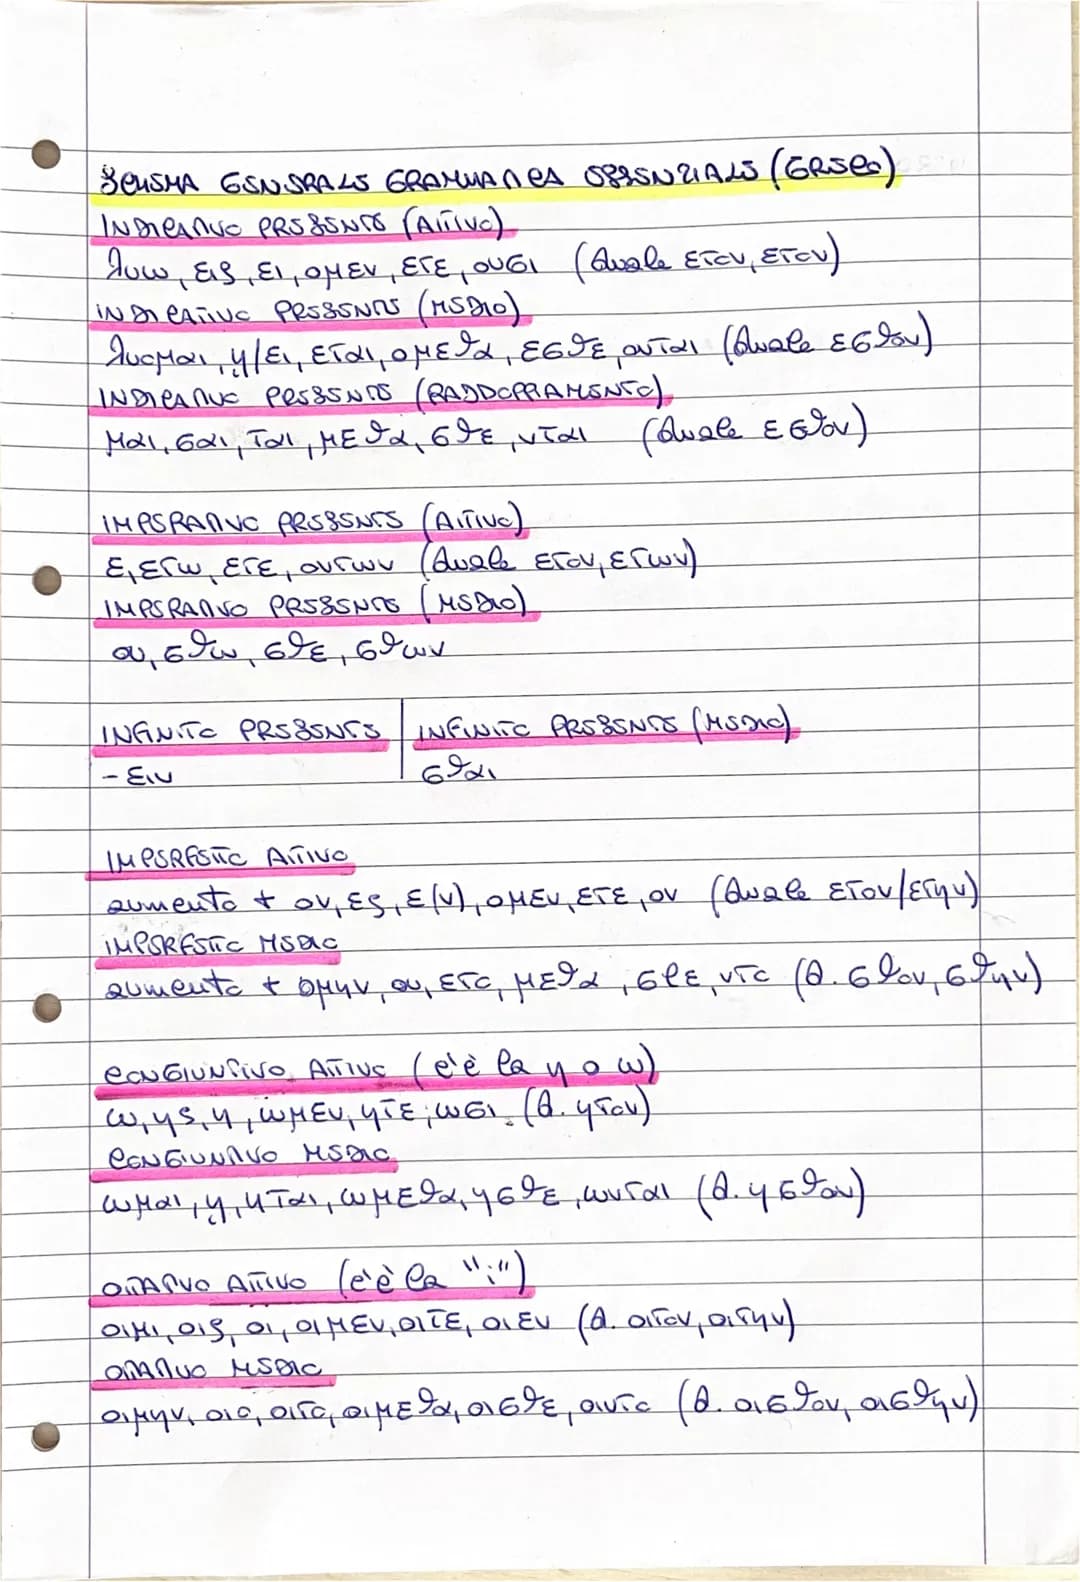 SCHEMA GENERALE GRAMMATICA ESSENZIALE (GRECO)
INDICATIVO PRESENTE (ATTIVO)
λυω, εις, ει, ομεν, ετε, ουσι (duale ετον, ετον)
INDICATIVO PRESENTE (MEDIO)
λυομαι, ῃ/ει, εται, ομεθα, εσθε, ονται (duale εσθον)
INDICATIVO PRESENTE (RADDOPPIAMENTO)
μαι, σαι, ται, μεθα, σθε, νται (duale εσθον)
IMPERATIVO PRESENTE (ATTIVO)
ε, ετω, ετε, οντων (duale ετον, ετων)
IMPERATIVO PRESENTE (MEDIO)
ου, σθω, σθε, σθων
INFINITO PRESENTE | INFINITO PRESENTE (MEDIO)
- ειν | σθαι
IMPERFETTO ATTIVO
aumento + ον, ες, ε(ν), ομεν, ετε, ον (duale ετον/ετην)
IMPERFETTO MEDIO
aumento + ομην, ου, ετο, μεθα, σθε, ντο (d. σθον, σθην)
CONGIUNTIVO ATTIVO (c'è la η o ω)
ω, ῃς, ῃ, ωμεν, ητε, ωσι. (d. ητον)
CONGIUNTIVO MEDIO
ωμαι, ῃ, ηται, ωμεθα, ησθε, ωνται (d. ησθον)
OTTATIVO ATTIVO (c'è la "i")
οιμι, οις, οι, οιμεν, οιτε, οιεν (d. οιτον, οιτην)
OTTATIVO MEDIO
οιμην, οιο, οιτο, οιμεθα, οισθε, οιντο (d. οισθον, οισθην)